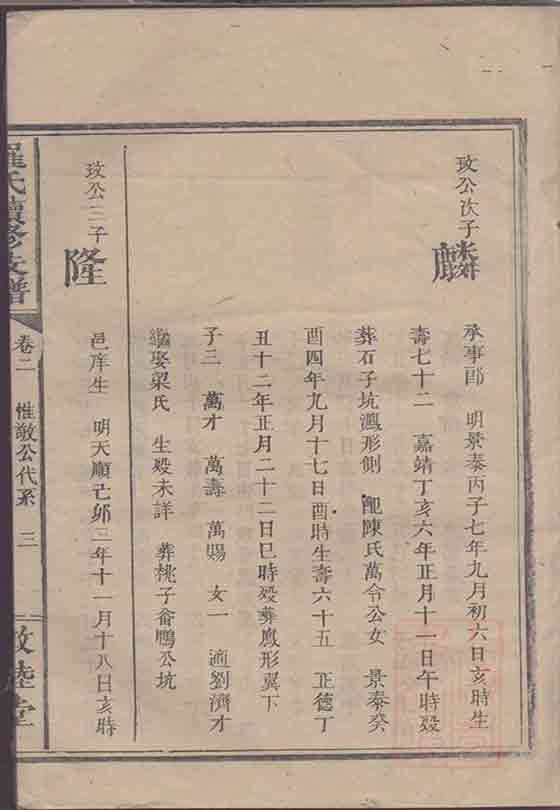 玫公次子
麟
承事郎 明景泰丙子七年九月初六日亥時生
壽七十二 嘉靖丁亥六年正月十一日午時殁
葬石子坑鳳形側 配陳氏萬令公女 景泰癸
酉四年九月十七日酉時生壽六十五 正德丁
丑十二年正月二十二日巳時殁葬鳳形翼下
子三 萬才 萬壽 萬賜 女一 適劉濟才
繼娶梁氏 生殁未詳 葬桃子畬鴨公坑
玫公三子
隆
邑庠生 明天順己卯三年十一月十八日亥時
羅氏續修支譜
卷二 惟敬公代系 三
敦睦堂